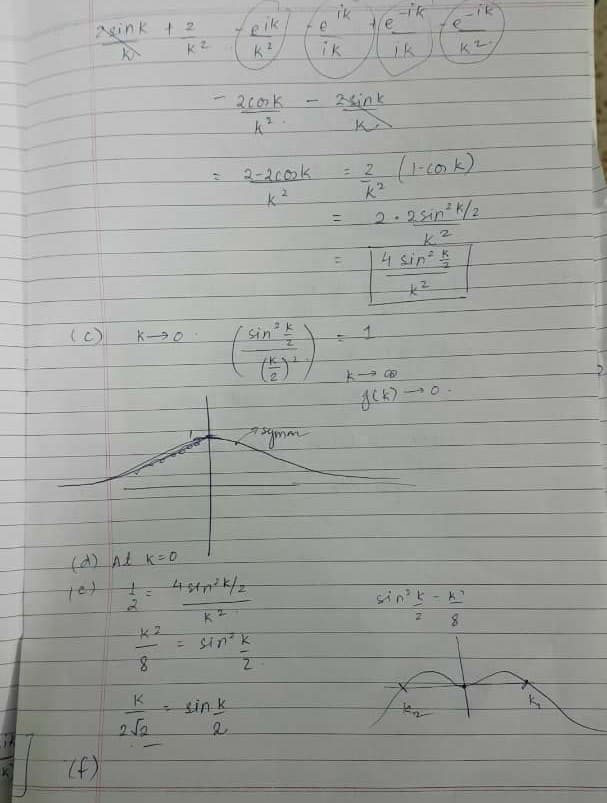 2sink/k + 2/k² - e^ik/k² - e^ik/ik + e^-ik/ik - e^-ik/k²
- 2cosk/k² - 2sink/k
= 2-2cosk/k² = 2/k² (1-cosk)
= 2·2sin²k/2 / k²
= 4 sin² k/2 / k²
(c) k→0 (sin² k/2 / (k/2)²) = 1
k→∞
g(k) →0.
1 symm
(d) At k=0
(e) 1/2 = 4sin²k/2 / k² sin² k/2 - k²/8
k²/8 = sin² k/2
k/2√2 = sin k/2 k₂ k₁
(f)